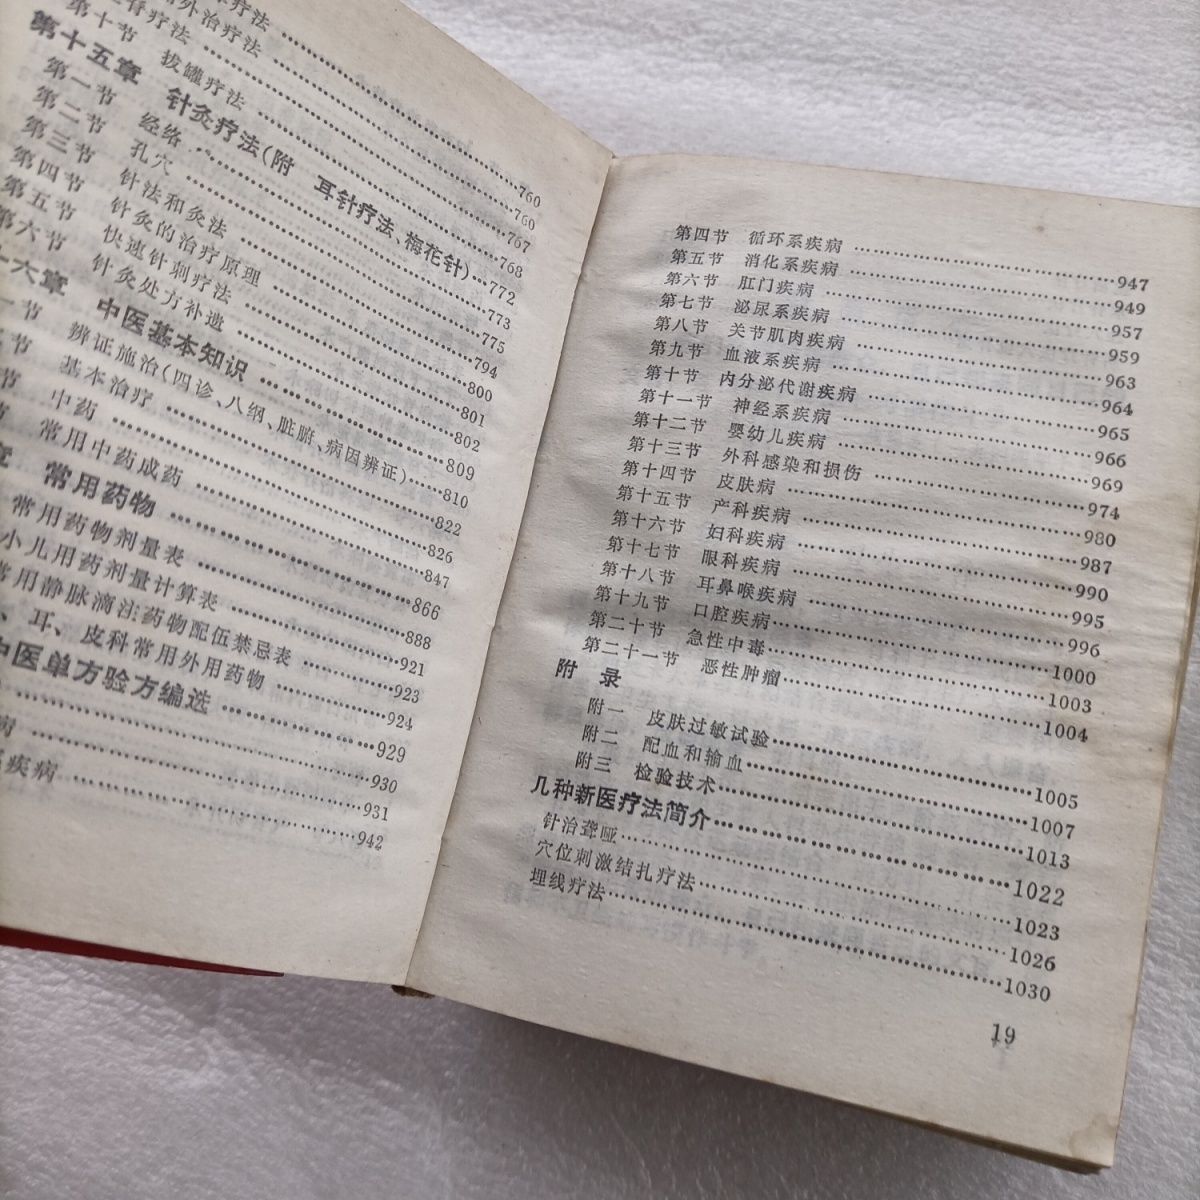 疗法……760
外治疗法……760
疗法……767
第十节 拔罐疗法……768
第十五章 针灸疗法(附 耳针疗法、梅花针)…772
第一节 经络……773
第二节 孔穴……775
第三节 针法和灸法……794
第四节 针灸的治疗原理……800
第五节 快速针刺疗法……801
第六节 针灸处方补遗……802
十六章 中医基本知识……809
一节 辨证施治(四诊、八纲、脏腑、病因辨证)……810
节 基本治疗……822
节 中药……826
节 常用中药成药……847
章 常用药物……866
常用药物剂量表……888
小儿用药剂量计算表……921
常用静脉滴注药物配伍禁忌表……923
、耳、皮科常用外用药物……924
中医单方验方编选……929
……930
病……931
疾病……942
第四节 循环系疾病……947
第五节 消化系疾病……949
第六节 肛门疾病……957
第七节 泌尿系疾病……959
第八节 关节肌肉疾病……963
第九节 血液系疾病……964
第十节 内分泌代谢疾病……965
第十一节 神经系疾病……966
第十二节 婴幼儿疾病……969
第十三节 外科感染和损伤……974
第十四节 皮肤病……980
第十五节 产科疾病……987
第十六节 妇科疾病……990
第十七节 眼科疾病……995
第十八节 耳鼻喉疾病……996
第十九节 口腔疾病……1000
第二十节 急性中毒……1003
第二十一节 恶性肿瘤……1004
附 录
附一 皮肤过敏试验……1005
附二 配血和输血……1007
附三 检验技术……1013
几种新医疗法简介……1022
针治聋哑……1023
穴位刺激结扎疗法……1026
埋线疗法……1030
19